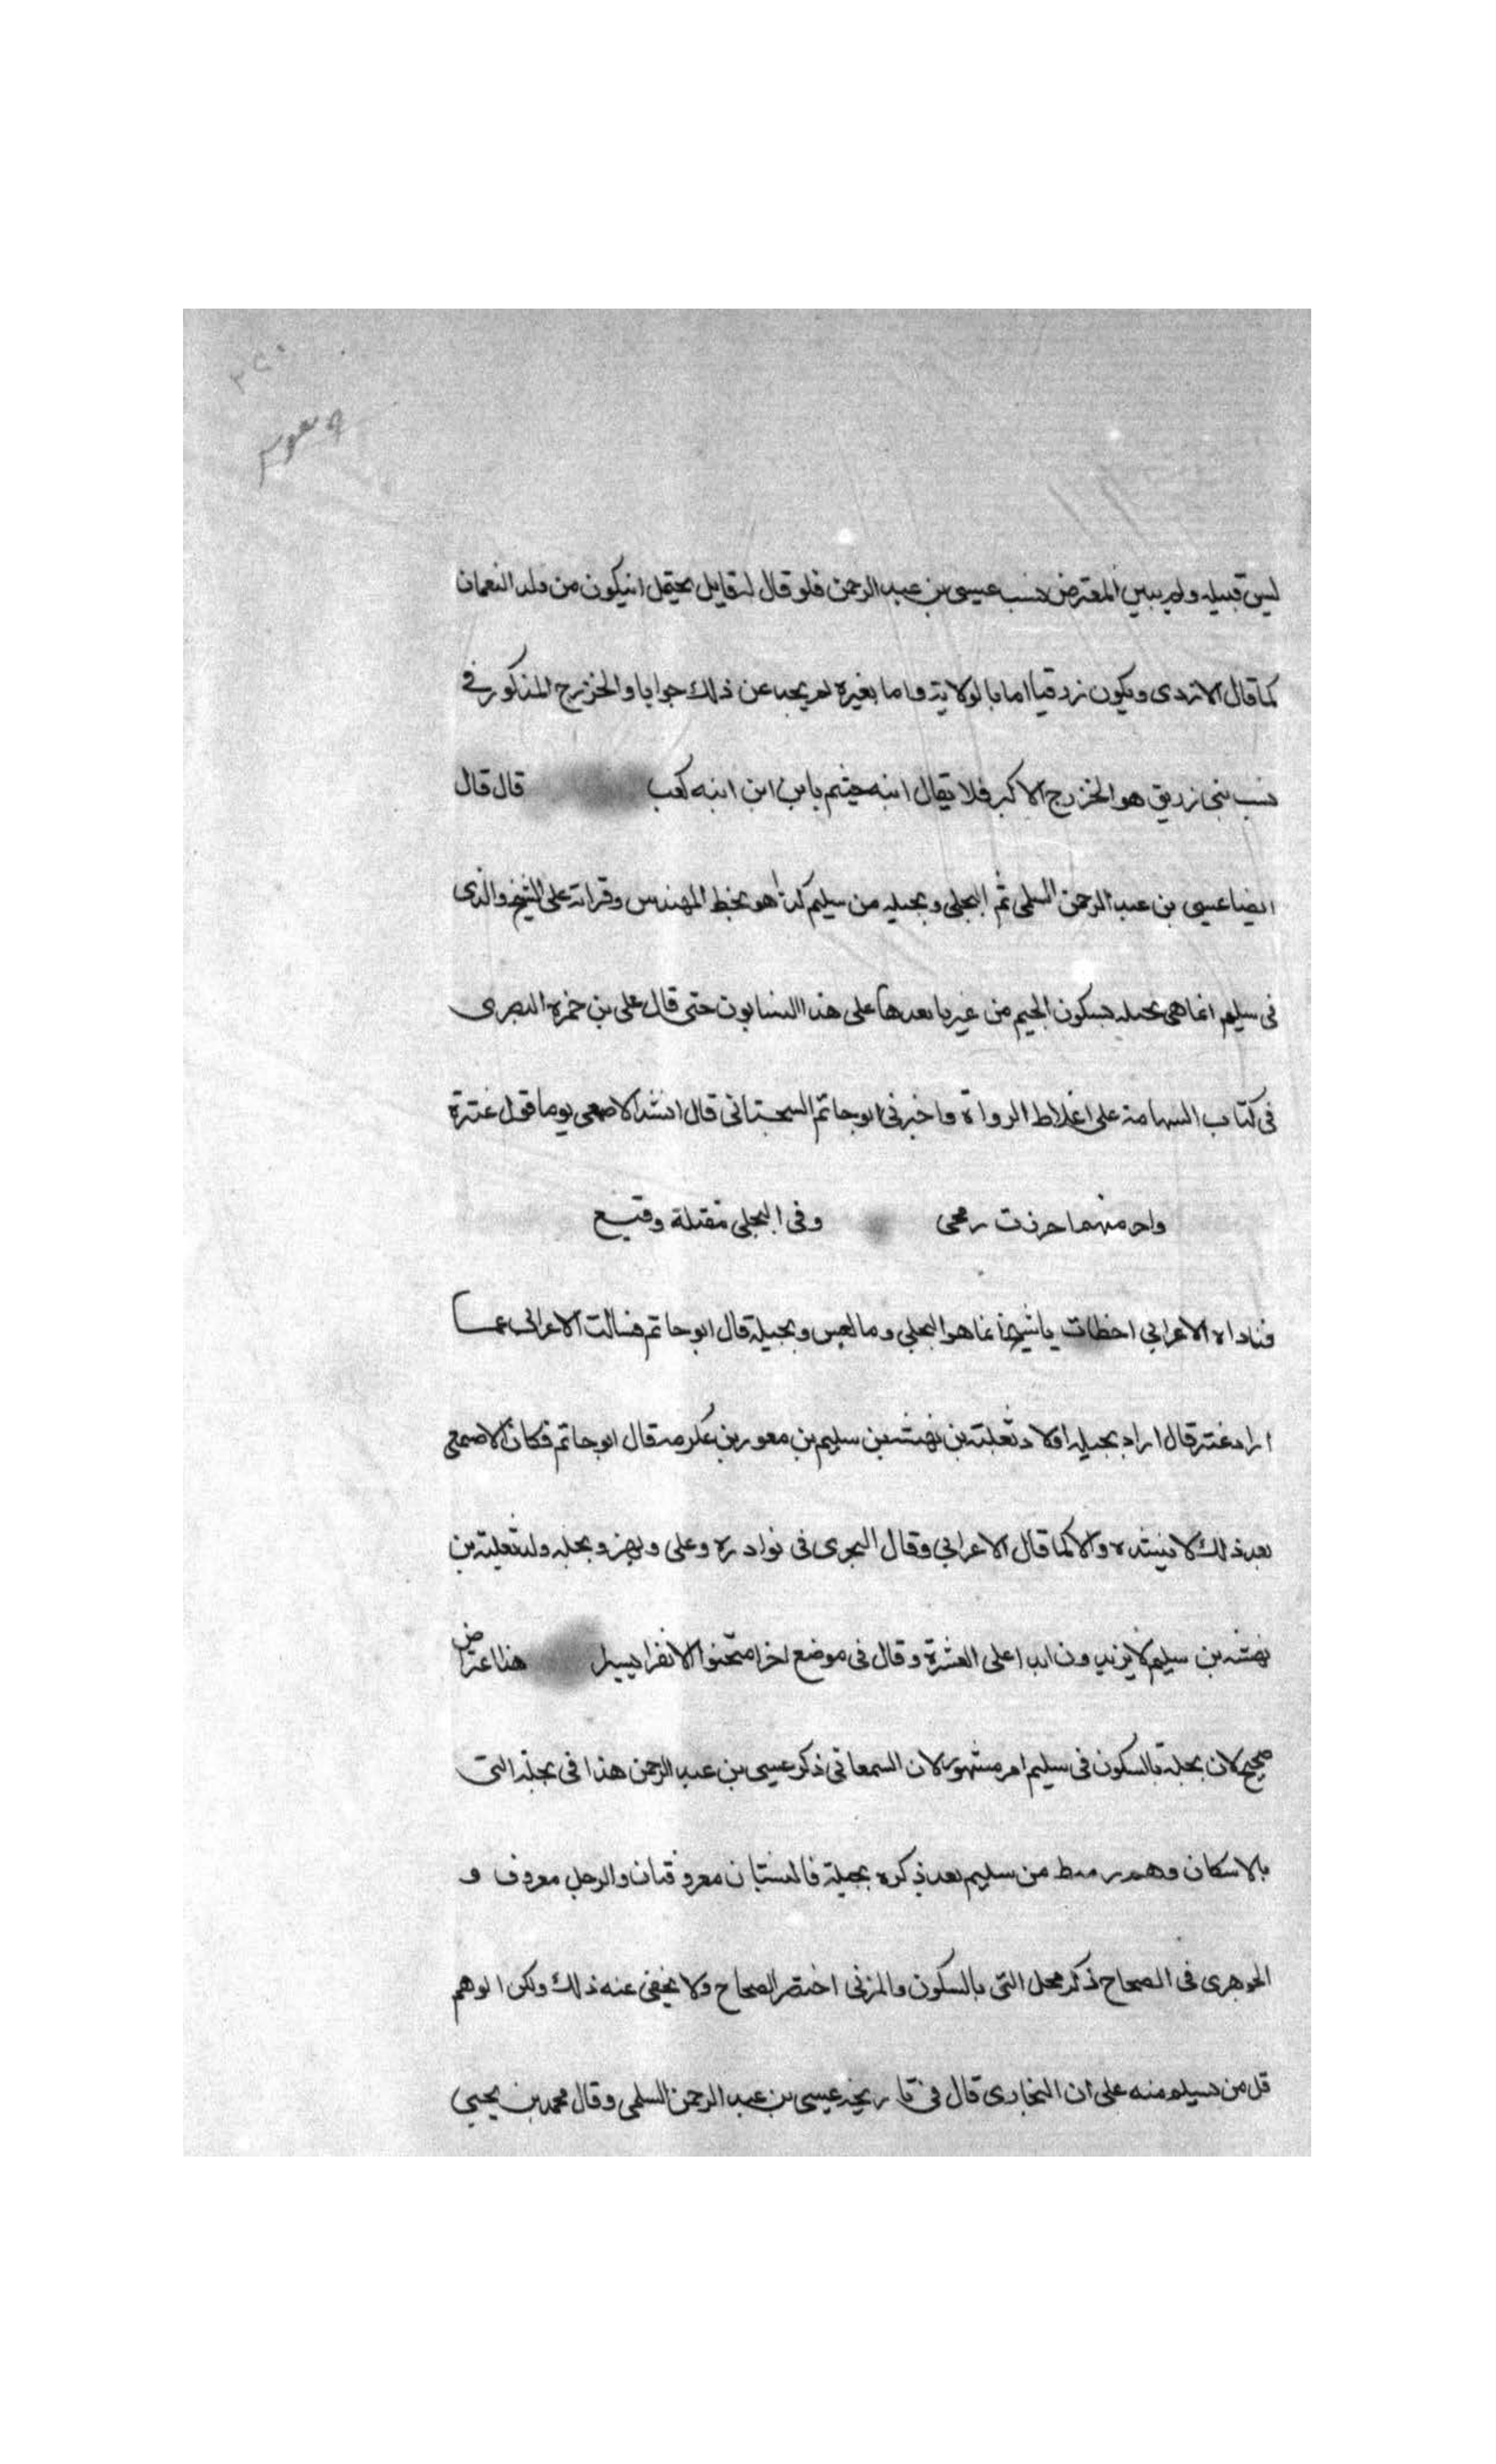 ليس قبيله ولم يبين المعترض نسب عيسى بن عبد الرحمن فلو قال له قايل يحتمل ان يكون من ولد النعمان
كما قال الازدى ويكون زرقيا اما بالولاية واما بغيره لم يجب عن ذلك جوابا والخزرج المذكور في
نسب بنى زريق هو الخزرج الاكبر فلا يقال ابنه جشم يا بن ابن ابنه كعب قال قال
ايضا عيسى بن عبد الرحمن السلمى ثم البجلى وبجيله من سليم كذا هو بخط المهندس وقراته على الشيخ والذى
فى سليم انما هى بجله بسكون الجيم من غير يا بعدها على هذا النسابون حتى قال على بن حمزه البصرى
فى كتاب على اغلاط الرواة واخبرنى ابو حاتم السجستانى قال انشد الاصمعى يوما قول عنترة
واخر منهما حررت رمحى وفى البجلى مقبلة وقيع
فناداه الاعرابي اخطات يا شيخ انما هو البجلي وما لعبس وبجيلة قال ابو حاتم فسالت الاعرابى عمـــا
اراد عنتر قال اراد بجيله اولاد ثعلبة بن بهثه بن سليم بن منصور بن عكرمه قال ابو حاتم فكان الاصمعى
بعد ذلك لا ينشده الا كما قال الاعرابي وقال الهجرى فى نوادره وعلى وبهز وبجله ولد ثعلبة بن
بهثه بن سليم لا يزيدون ابدا على العشرة وقال فى موضع اخر الا نفرا يسيرا هذا اعتراض
صحيح لان بجلة بالسكون فى سليم امر مشهور لان السمعانى ذكر عيسى بن عبد الرحمن هذا فى بجلة التى
بالاسكان وهم رهط من سليم بعد ذكره بجيلة فالنسبتان معروفتان والرجل معروف و
الجوهرى فى الصحاح ذكر بجل التى بالسكون والمزنى اختصر الصحاح ولا يخفى عنه ذلك ولكن الوهم
قل من يسلم منه على ان البخارى قال فى تاريخه عيسى بن عبد الرحمن السلمى وقال محمد بن يحيى